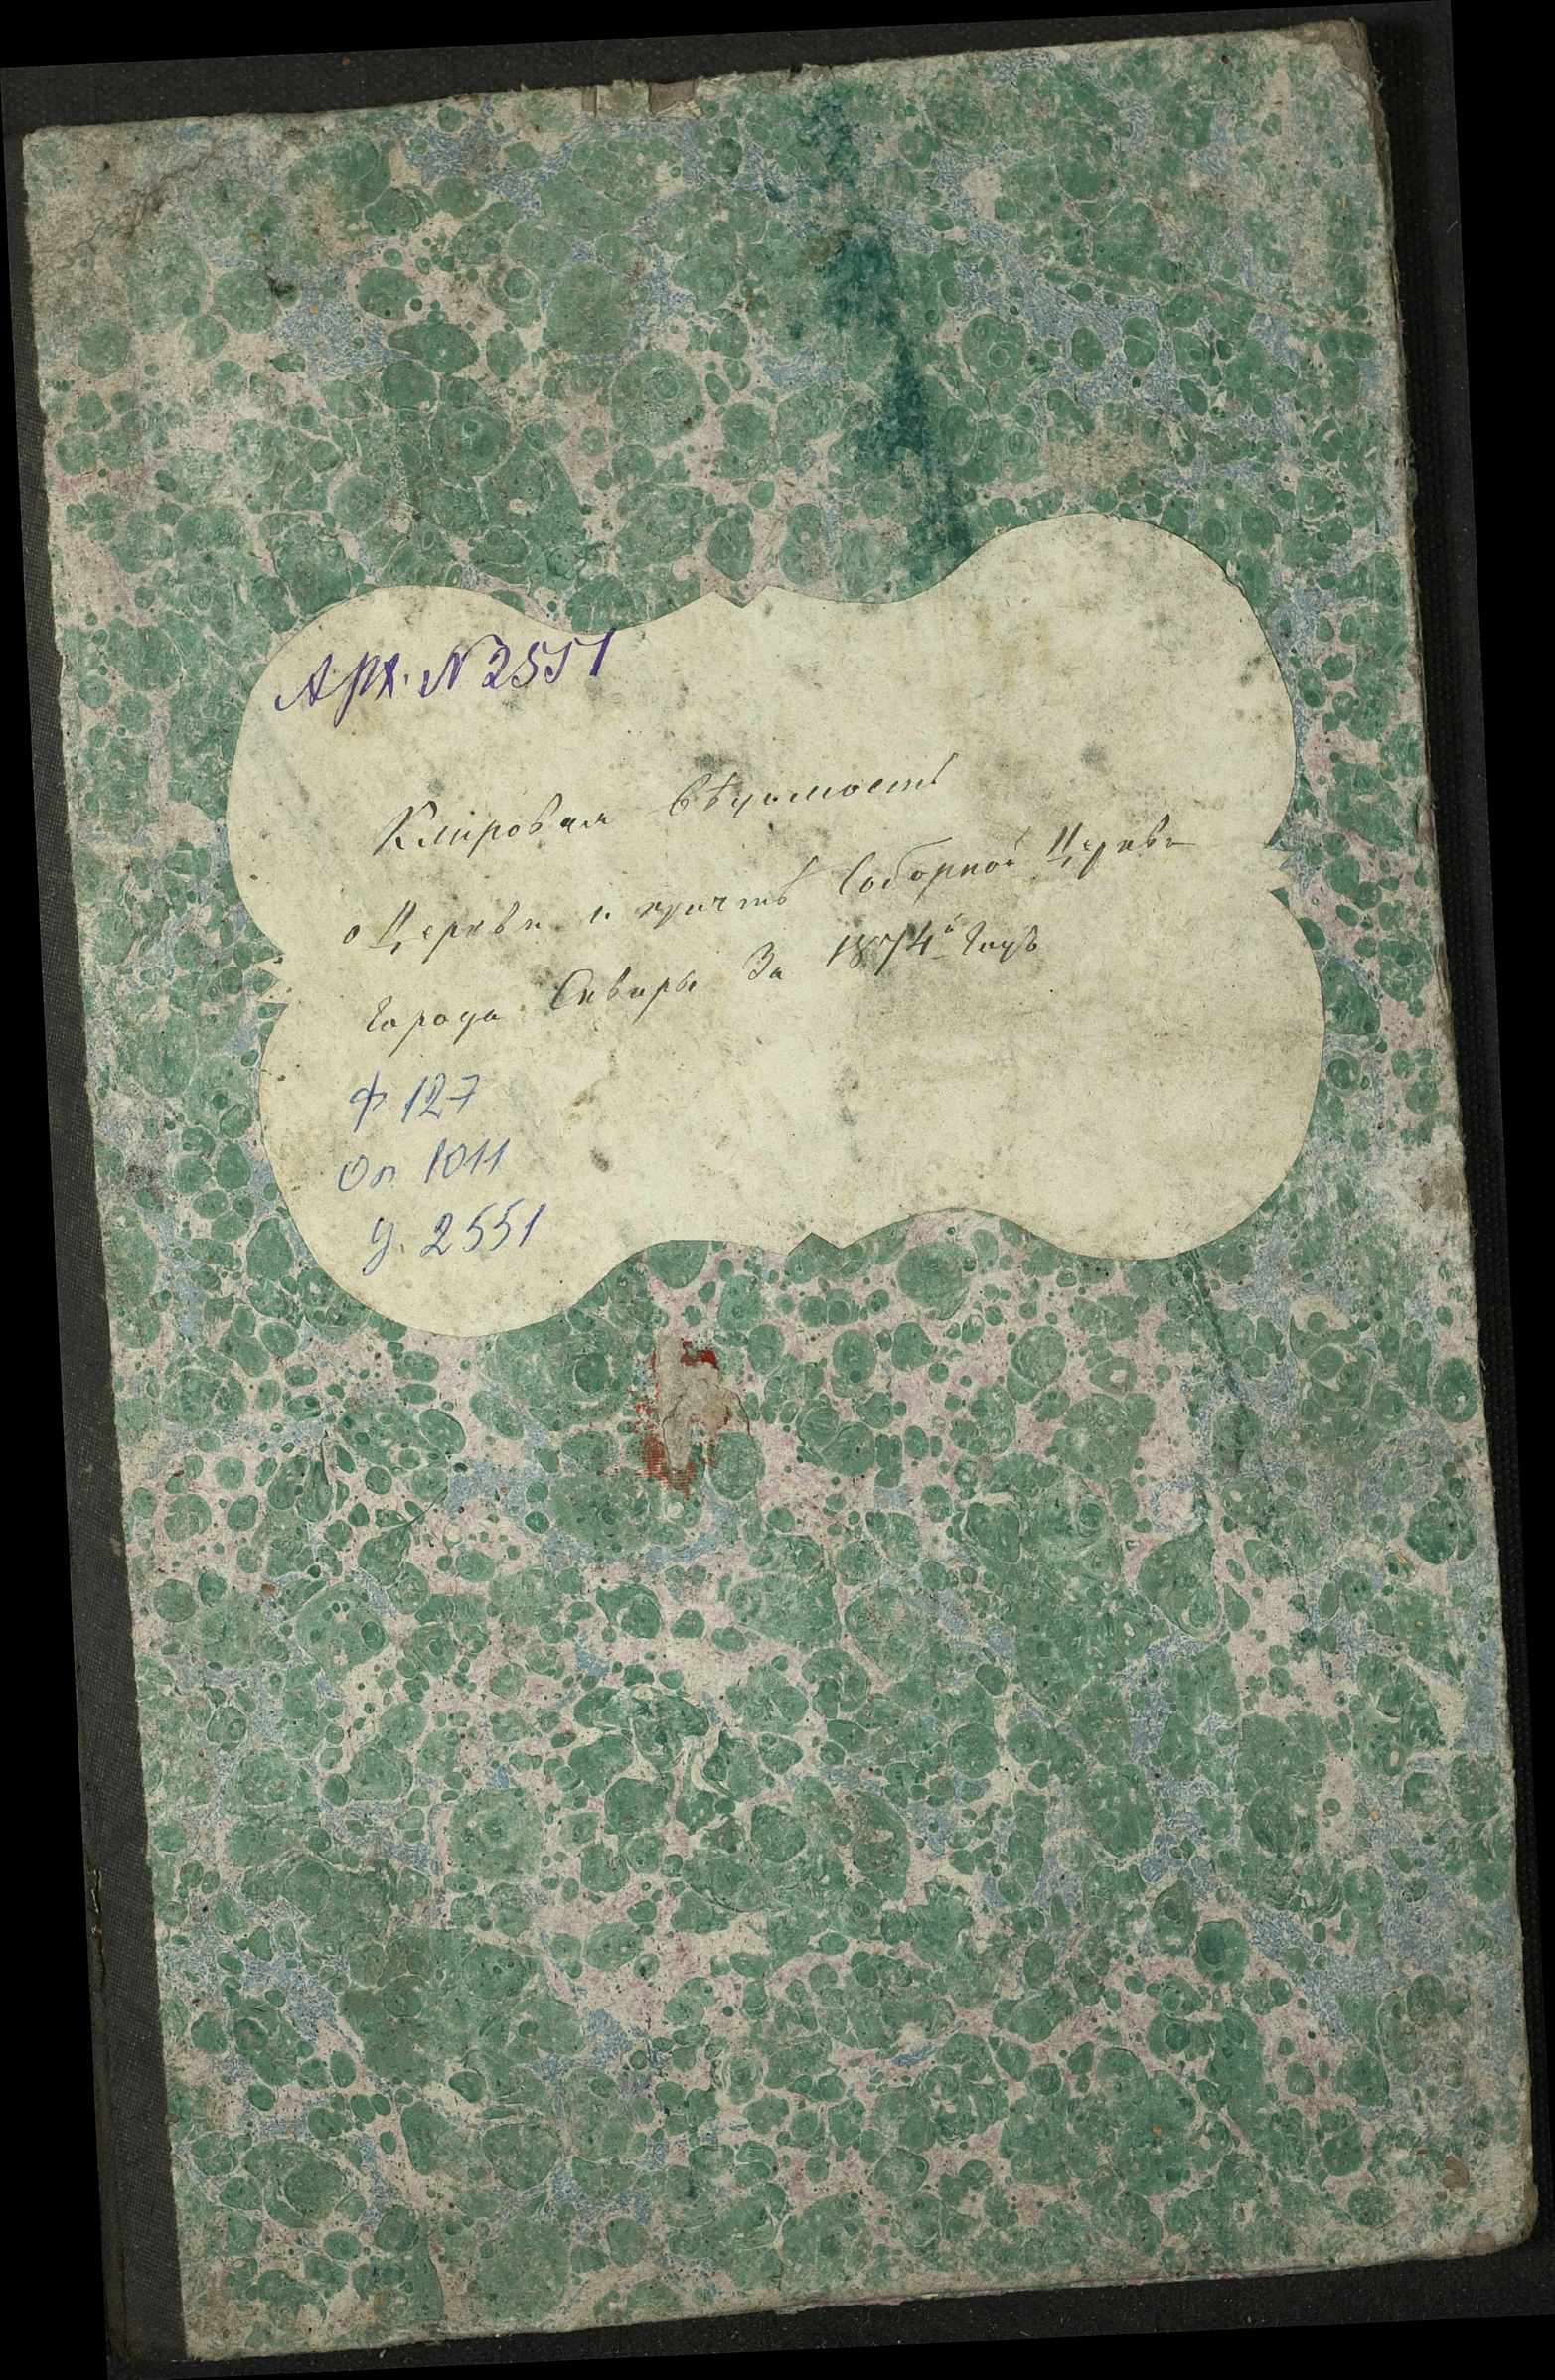 Арх. N 2551
Клировая Вѣдомость
о Церкви и причтѣ Соборной Церкви
Города Сквиры За 1874й Годъ
Ф 127
Оп 1011
д. 2551